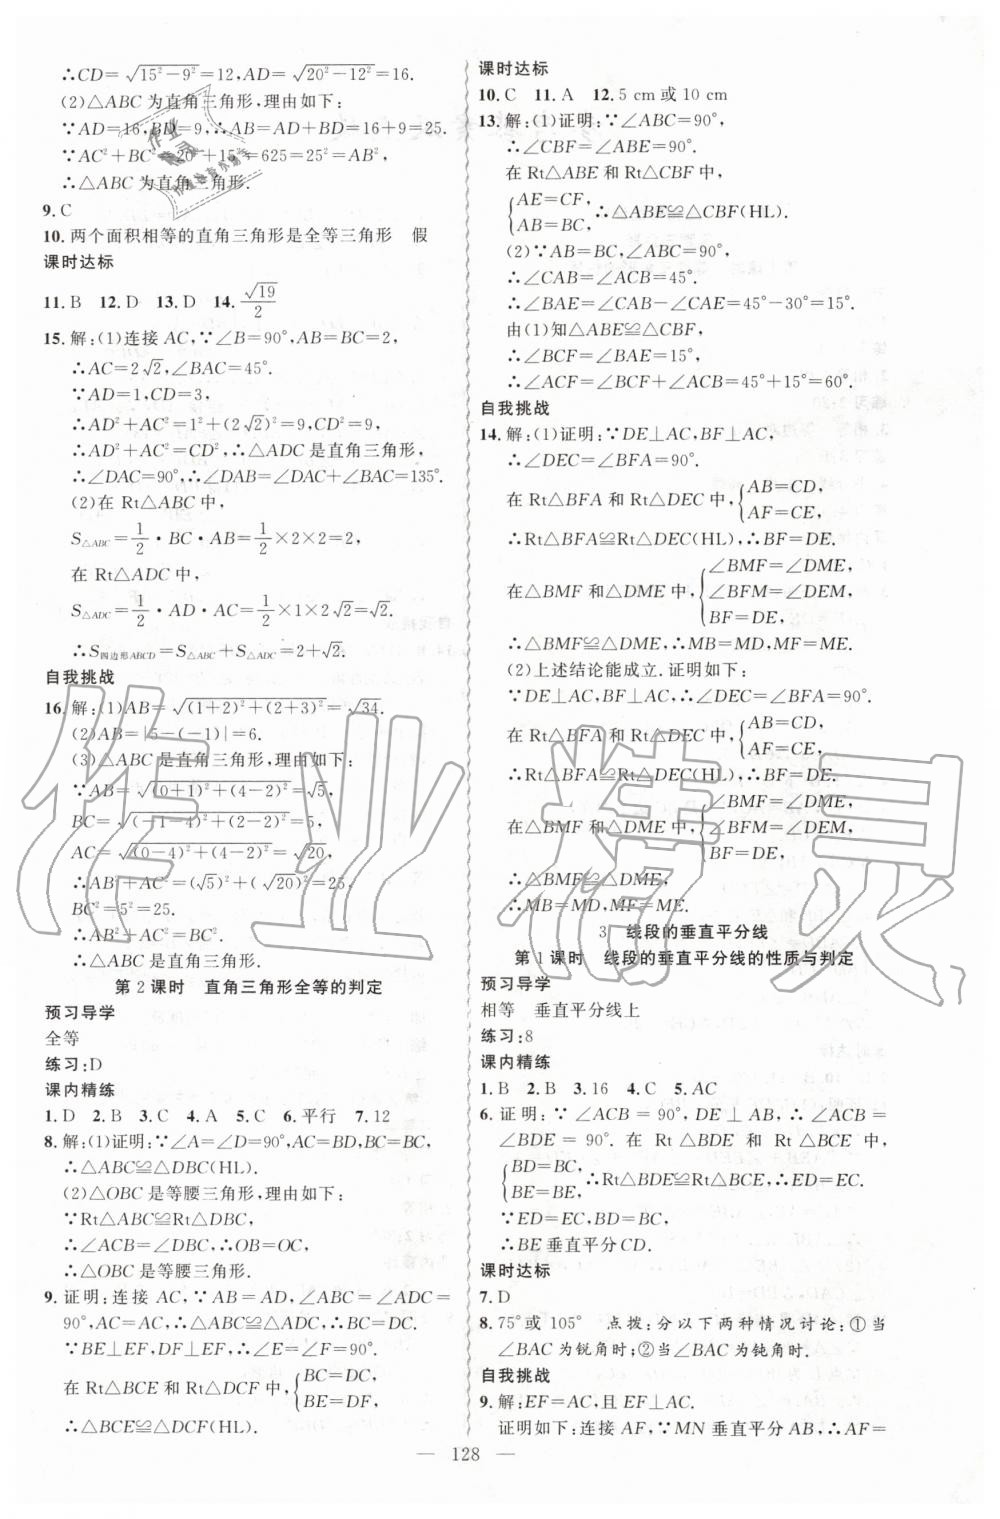 ∴CD=√(15²−9²)=12,AD=√(20²−12²)=16.
(2)△ABC 为直角三角形,理由如下:
∵AD=16,BD=9,∴AB=AD+BD=16+9=25.
∵AC²+BC²=20²+15²=625=25²=AB²,
∴△ABC 为直角三角形.
9.C
10.两个面积相等的直角三角形是全等三角形 假
课时达标
11.B 12.D 13.D 14.√19/2
15.解:(1)连接 AC,∵∠B=90°,AB=BC=2,
∴AC=2√2,∠BAC=45°.
∵AD=1,CD=3,
∴AD²+AC²=1²+(2√2)²=9,CD²=9,
∴AD²+AC²=CD²,∴△ADC 是直角三角形,
∴∠DAC=90°,∴∠DAB=∠DAC+∠BAC=135°.
(2)在 Rt△ABC 中,
S△ABC=1/2·BC·AB=1/2×2×2=2,
在 Rt△ADC 中,
S△ADC=1/2·AD·AC=1/2×1×2√2=√2.
∴S四边形ABCD=S△ABC+S△ADC=2+√2.
自我挑战
16.解:(1)AB=√((1+2)²+(2+3)²)=√34.
(2)AB=|5−(−1)|=6.
(3)△ABC 是直角三角形,理由:
∵AB=√((0+1)²+(4−2)²)=√5,
BC=√((−1−4)²+(2−2)²)=5,
AC=√((0−4)²+(4−2)²)=√20,
∴AB²+AC²=(√5)²+(√20)²=25,
BC²=5²=25.
∴AB²+AC²=BC².
∴△ABC 是直角三角形.
第 2 课时 直角三角形全等的判定
预习导学
全等
练习:D
课内精练
1.D 2.B 3.C 4.A 5.C 6.平行 7.12
8.解:(1)证明:∵∠A=∠D=90°,AC=BD,BC=BC,
∴△ABC≌△DBC(HL).
(2)△OBC 是等腰三角形,理由如下:
∵Rt△ABC≌Rt△DBC,
∴∠ACB=∠DBC,∴OB=OC,
∴△OBC 是等腰三角形.
9.证明:连接 AC,∵AB=AD,∠ABC=∠ADC=
90°,AC=AC,∴△ABC≌△ADC,∴BC=DC.
∵BE⊥EF,DF⊥EF,∴∠E=∠F=90°,
在 Rt△BCE 和 Rt△DCF 中,{BC=DC,
BE=DF,
∴△BCE≌△DCF(HL).
课时达标
10.C 11.A 12.5 cm 或 10 cm
13.解:(1)证明:∵∠ABC=90°,
∴∠CBF=∠ABE=90°.
在 Rt△ABE 和 Rt△CBF 中,
{AE=CF,
AB=BC, ∴△ABE≌△CBF(HL).
(2)∵AB=BC,∠ABC=90°,
∴∠CAB=∠ACB=45°.
∴∠BAE=∠CAB−∠CAE=45°−30°=15°.
由(1)知△ABE≌△CBF,
∴∠BCF=∠BAE=15°,
∴∠ACF=∠BCF+∠ACB=45°+15°=60°.
自我挑战
14.解:(1)证明:∵DE⊥AC,BF⊥AC,
∴∠DEC=∠BFA=90°.
在 Rt△BFA 和 Rt△DEC 中,{AB=CD,
AF=CE,
∴Rt△BFA≌Rt△DEC(HL),∴BF=DE.
在△BMF 和△DME 中,{∠BMF=∠DME,
∠BFM=∠DEM,
BF=DE,
∴△BMF≌△DME,∴MB=MD,MF=ME.
(2)上述结论能成立.证明如下:
∵DE⊥AC,BF⊥AC,∴∠DEC=∠BFA=90°.
在 Rt△BFA 和 Rt△DEC 中,{AB=CD,
AF=CE,
∴Rt△BFA≌Rt△DEC(HL),∴BF=DE.
在△BMF 和△DME 中,{∠BMF=∠DME,
∠BFM=∠DEM,
BF=DE,
∴△BMF≌△DME.
∴MB=MD,MF=ME.
3 线段的垂直平分线
第 1 课时 线段的垂直平分线的性质与判定
预习导学
相等 垂直平分线上
练习:8
课内精练
1.B 2.B 3.16 4.C 5.AC
6.证明:∵∠ACB=90°,DE⊥AB,∴∠ACB=
∠BDE=90°.在 Rt△BDE 和 Rt△BCE 中,
{BD=BC,
BE=BE, ∴Rt△BDE≌Rt△BCE,∴ED=EC.
∵ED=EC,BD=BC,
∴BE 垂直平分 CD.
课时达标
7.D
8.75°或 105° 点拨:分以下两种情况讨论:①当
∠BAC 为锐角时;②当∠BAC 为钝角时.
自我挑战
9.解:EF=AC,且 EF⊥AC.
证明如下:连接 AF,∵MN 垂直平分 AB,∴AF=
— 128 —
作业精灵